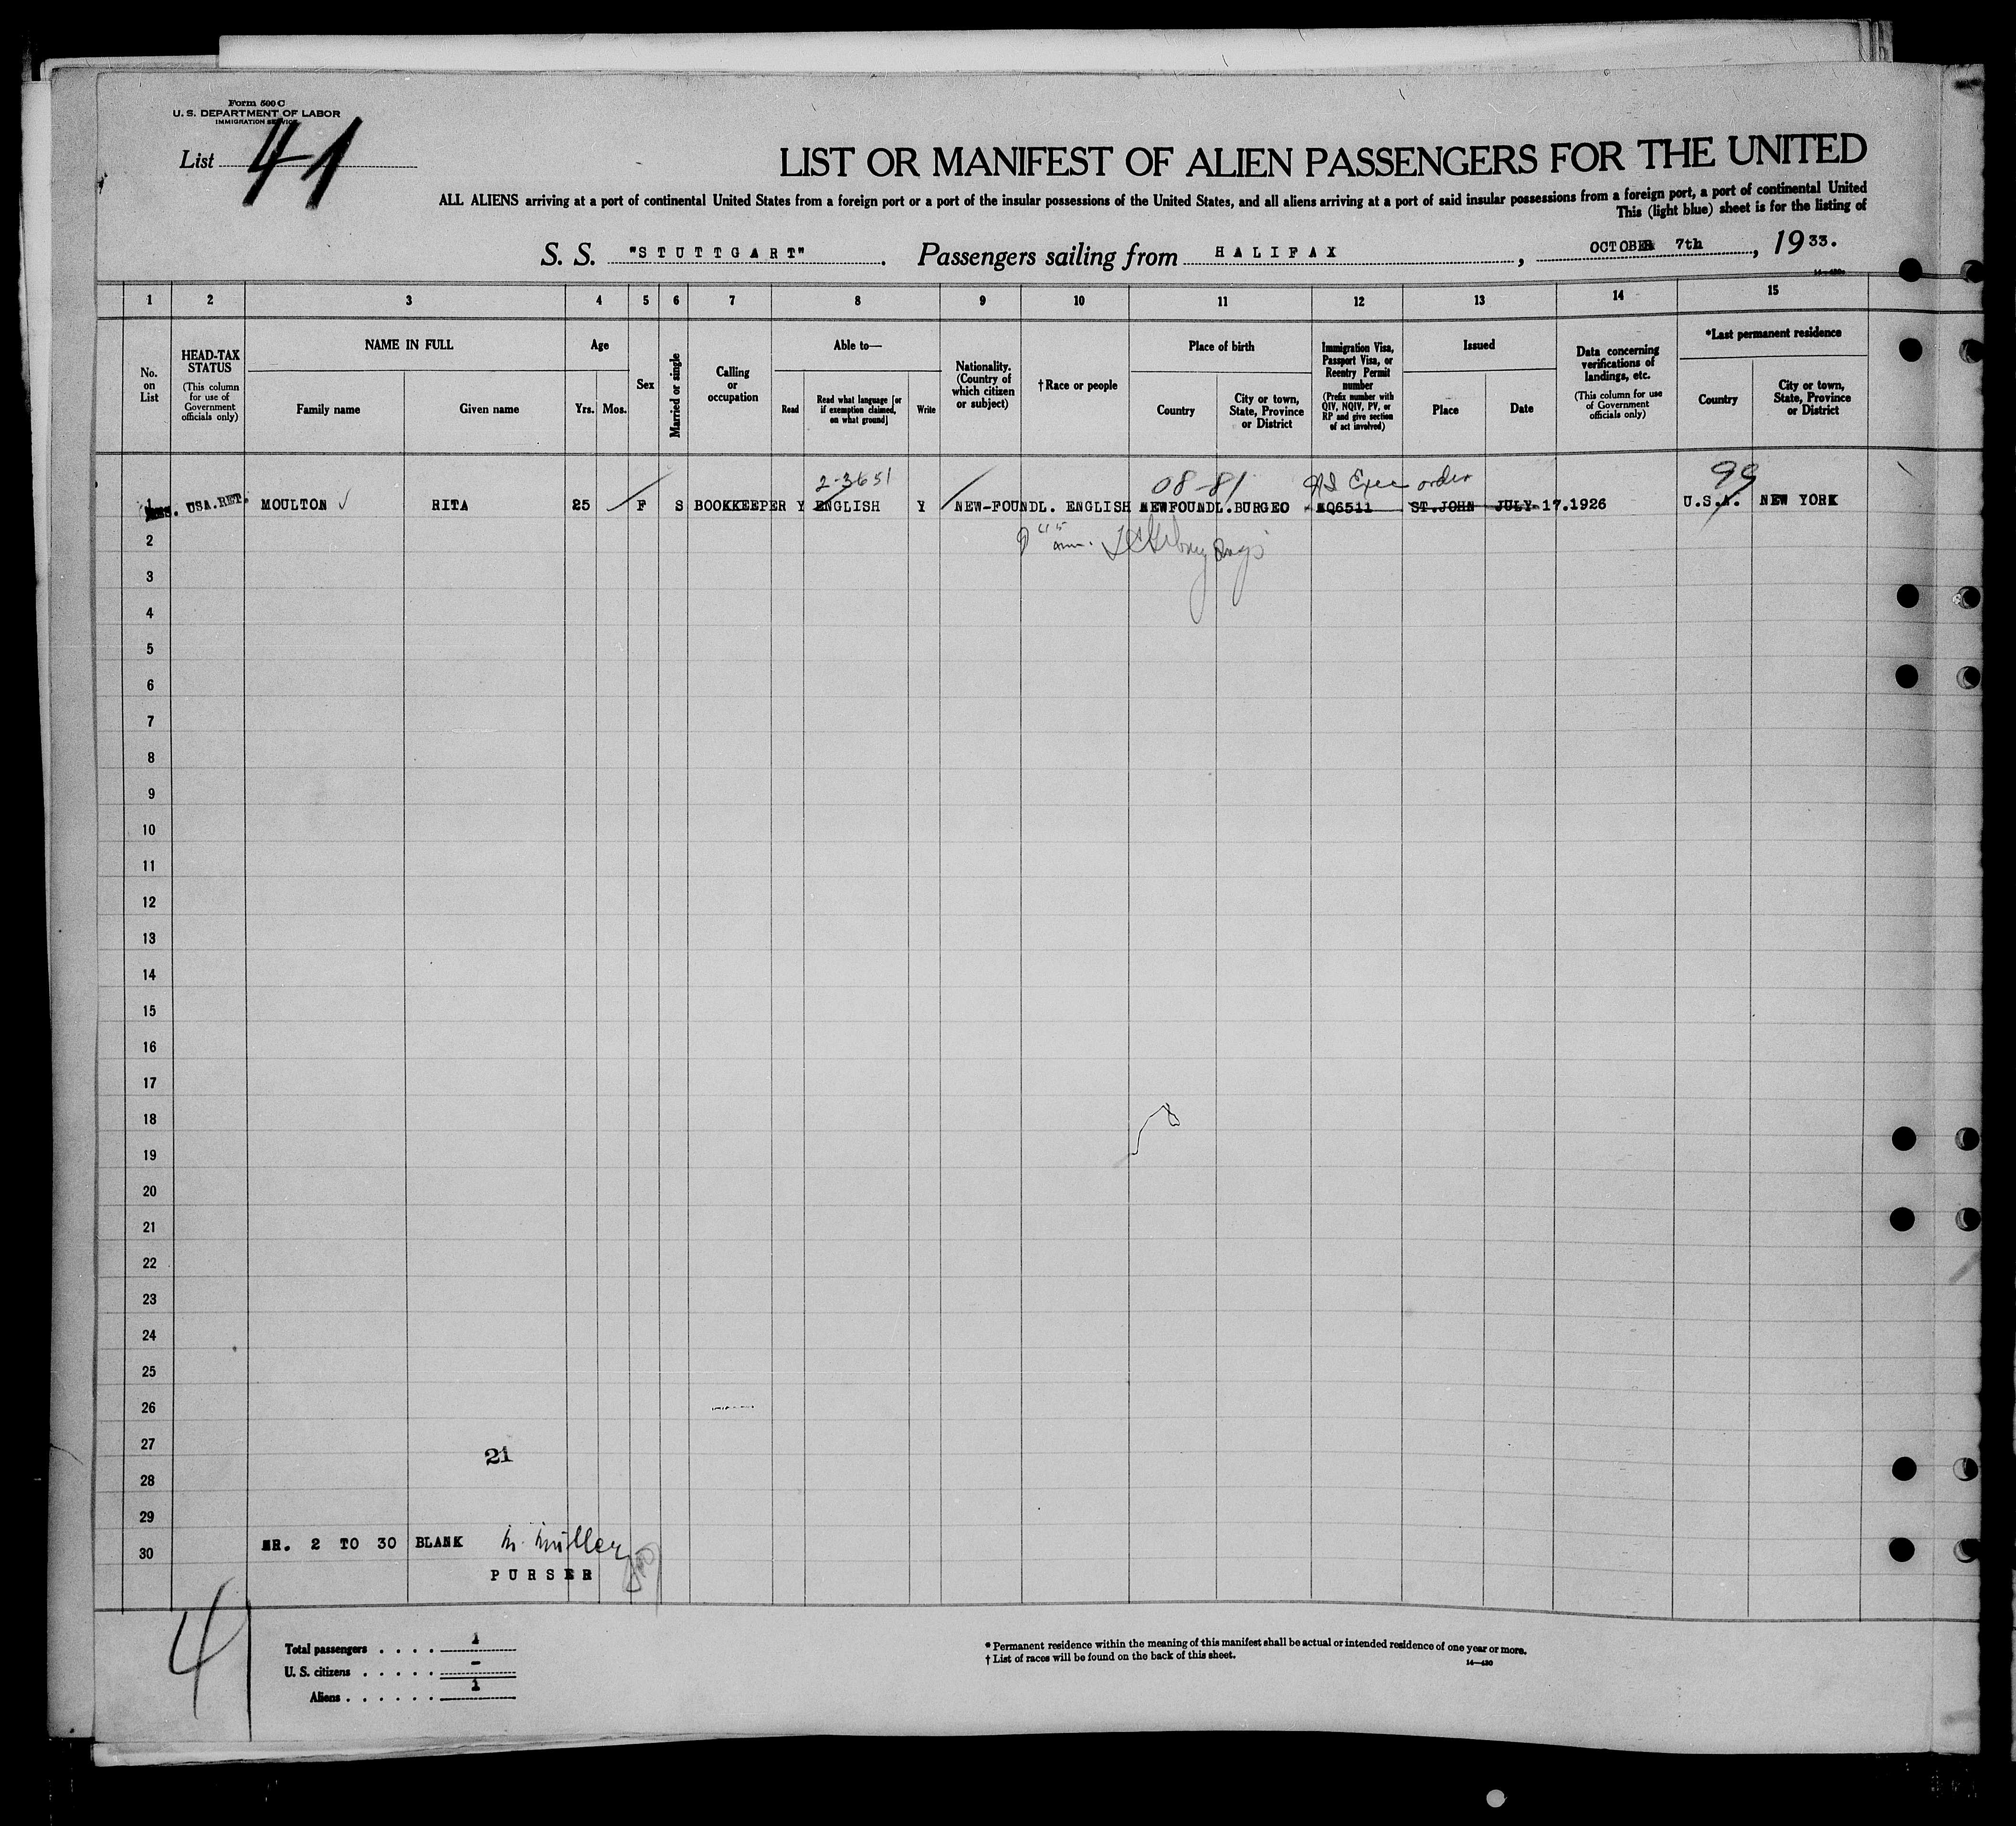 Form 500 C
U. S. DEPARTMENT OF LABOR
IMMIGRATION SERVICE
List 41
LIST OR MANIFEST OF ALIEN PASSENGERS FOR THE UNITED
ALL ALIENS arriving at a port of continental United States from a foreign port or a port of the insular possessions of the United States, and all aliens arriving at a port of said insular possessions from a foreign port, a port of continental United
This (light blue) sheet is for the listing of
S. S. "STUTTGART". Passengers sailing from HALIFAX, OCTOBER 7th, 1933.
14—430
1 2 3 4 5 6 7 8 9 10 11 12 13 14 15
No. on List
HEAD-TAX STATUS (This column for use of Government officials only)
NAME IN FULL
Family name Given name
Age
Yrs. Mos.
Sex
Married or single
Calling or occupation
Able to—
Read Read what language [or if exemption claimed, on what ground] Write
Nationality. (Country of which citizen or subject)
†Race or people
Place of birth
Country City or town, State, Province or District
Immigration Visa, Passport Visa, or Reentry Permit number (Prefix number with QIV, NQIV, PV, or RP and give section of act involved)
Issued
Place Date
Data concerning verifications of landings, etc. (This column for use of Government officials only)
*Last permanent residence
Country City or town, State, Province or District
2-3651 08-81 Exec order 99
1 USA.RET. MOULTON RITA 25 F S BOOKKEEPER Y ENGLISH Y NEW-FOUNDL. ENGLISH NEWFOUNDL. BURGEO NQ6511 ST.JOHN JULY-17.1926 U.S.A. NEW YORK
2
3
4
5
6
7
8
9
10
11
12
13
14
15
16
17
18
19
20
21
22
23
24
25
26
27
21
28
29
30 NR. 2 TO 30 BLANK M. Müller
PURSER
41
Total passengers . . . . 1
U. S. citizens . . . . . -
Aliens . . . . . . 1
* Permanent residence within the meaning of this manifest shall be actual or intended residence of one year or more.
† List of races will be found on the back of this sheet.
14—430